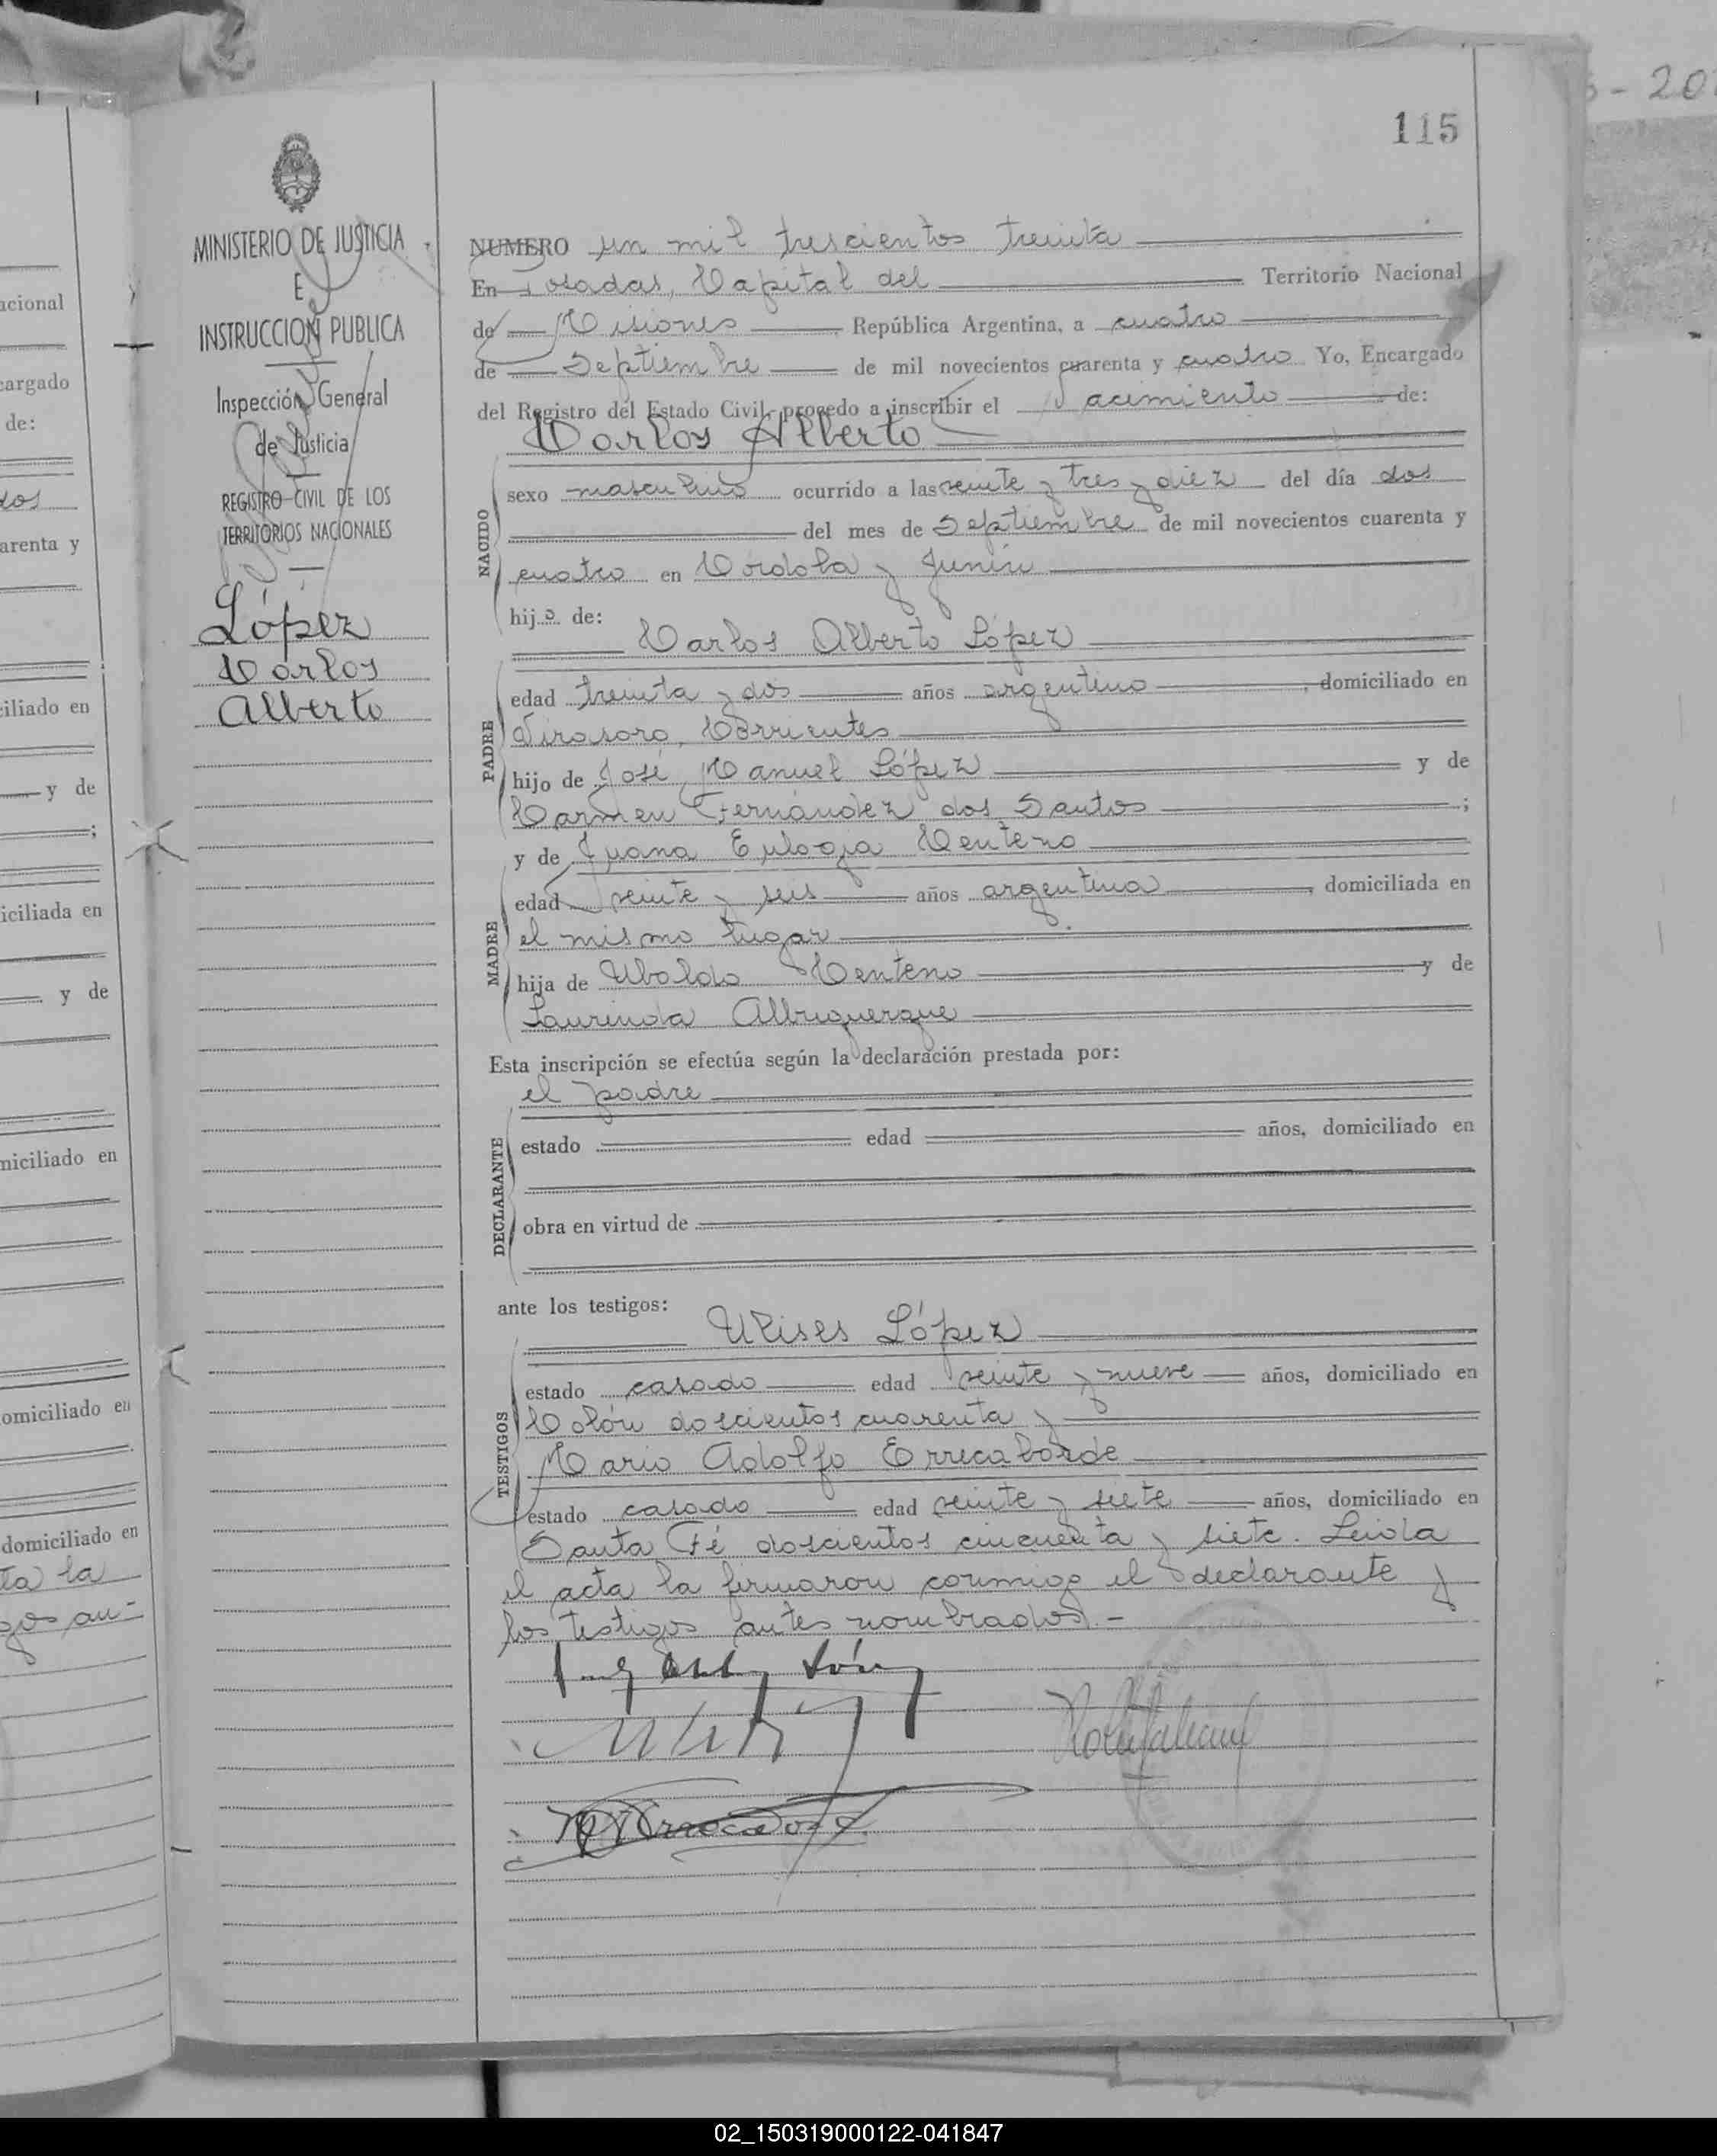 115
MINISTERIO DE JUSTICIA
E
INSTRUCCION PUBLICA
Inspección General
de Justicia
REGISTRO CIVIL DE LOS
TERRITORIOS NACIONALES
López
Carlos
Alberto
NUMERO un mil trescientos treinta
En Posadas, Capital del Territorio Nacional
de Misiones, República Argentina, a cuatro
de Septiembre de mil novecientos cuarenta y cuatro Yo, Encargado
del Registro del Estado Civil, procedo a inscribir el Nacimiento de:
Carlos Alberto
NACIDO
sexo masculino ocurrido a las veinte y tres y diez del día dos
del mes de Septiembre de mil novecientos cuarenta y
cuatro en Córdoba y Junín
hijo de:
Carlos Alberto López
PADRE
edad treinta y dos años argentino, domiciliado en
Virasoro, Corrientes
hijo de José Manuel López y de
Carmen Fernández dos Santos;
y de Juana Eulogia Centeno
MADRE
edad veinte y seis años argentina, domiciliada en
el mismo lugar
hija de Ubaldo Centeno y de
Laurinda Albuquerque
Esta inscripción se efectúa según la declaración prestada por:
el padre
DECLARANTE
estado edad años, domiciliado en
obra en virtud de
ante los testigos:
Ulises López
TESTIGOS
estado casado edad veinte y nueve años, domiciliado en
Colón doscientos cuarenta y
Mario Adolfo Errecaborde
estado casado edad veinte y siete años, domiciliado en
Santa Fé doscientos cincuenta y siete. Leida
el acta la firmaron conmigo el declarante y
los testigos antes nombrados.-
acional
cargado
de:
dos
arenta y
ciliado en
y de
;
iciliada en
y de
miciliado en
omiciliado en
domiciliado en
ta la
gos an-
02_150319000122-041847